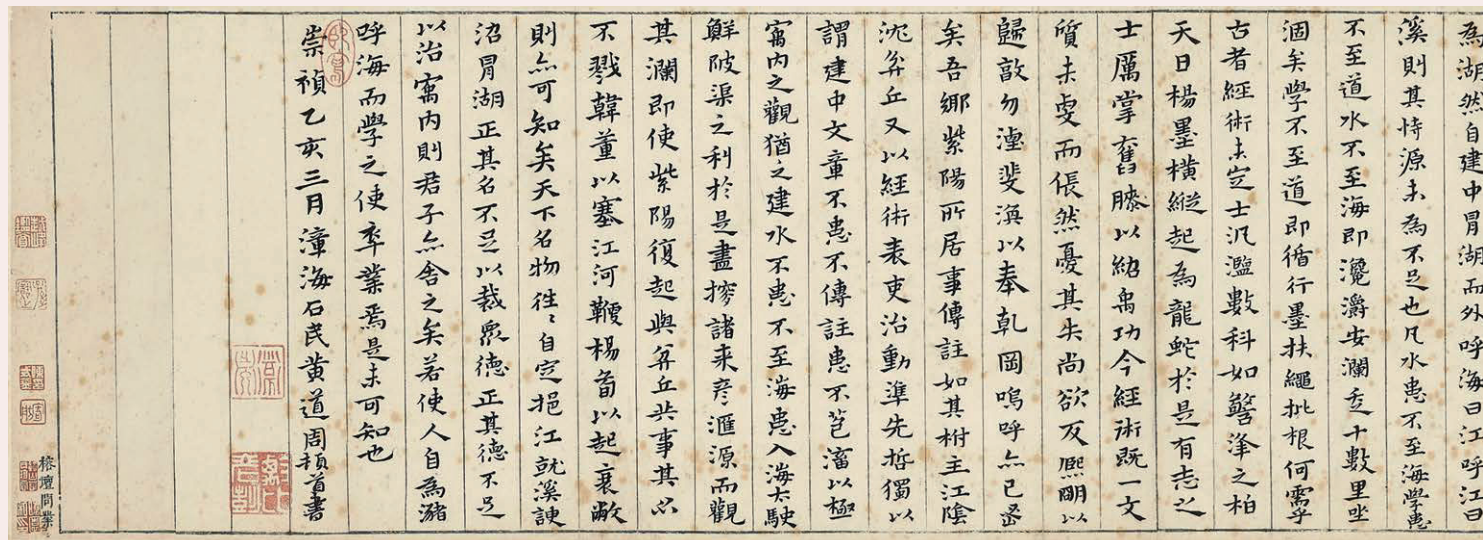 為湖然自建中胃湖而外呼海曰江呼江曰
溪則其恃源未為不足也凡水患不至海學患
不至道水不至海即瀺灂安瀾之十數里坐
涸矣學不至道即循行墨扶繩批根何需乎
古者經術未定士汎濫數科如螫泽之柏
天日楊墨橫縱起為龍蛇於是有志之
士厲掌奮膝以紹禹功今經術既一文
質未變而倀然憂其失尚欲反熈明以
歸敦勿濾斐滇以奉乾岡嗚呼亦已
矣吾鄉紫陽所居事傳註如其柎主江陰
沈弅丘又以經術表吏治動準先哲獨以
謂建中文章不患不傳註患不苞滀以極
㝢內之觀猶之建水不患不至海患入海太駛
鮮陂渠之利於是盡搜諸来彦滙源而觀
其瀾即使紫陽復起與弅丘共事其必
不戮韓董以塞江河鞭楊荀以起衰敝
則亦可知矣天下名物徃〻自定挹江就溪諌
沼冒湖正其名不足以裁衆德正其德不足
以治㝢內則君子亦舍之矣若使人自為瀦
呼海而學之使卒業焉是未可知也
崇禎乙亥三月漳海石民黄道周頓首書
榕壇問業